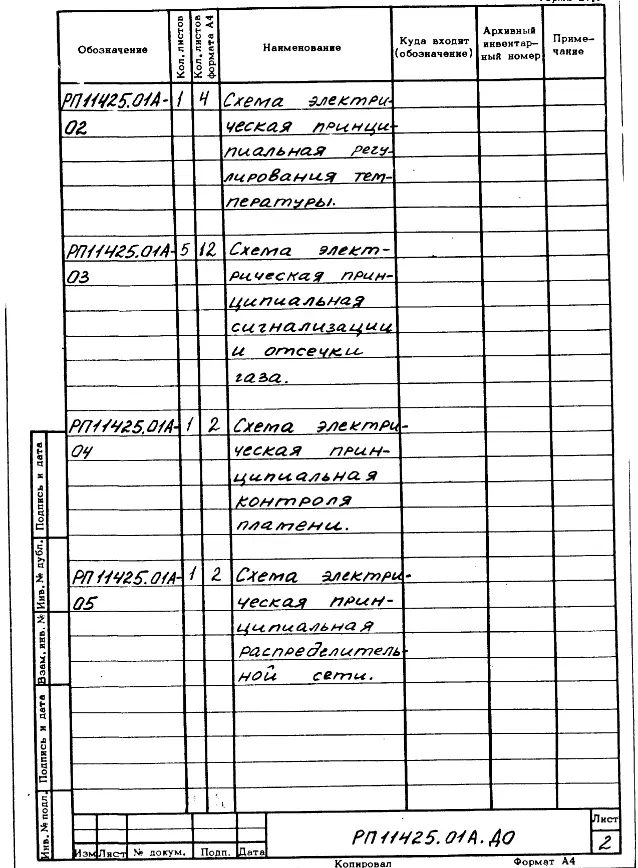 Обозначение Кол. листов Кол. листов формата А4 Наименование Куда входит (обозначение) Архивный инвентарный номер Примечание
РП11425.01А- 1 4 Схема электри-
02 ческая принци-
пиальная регу-
лирования тем-
пературы.
РП11425.01А 5 12 Схема элект-
03 рическая прин-
ципиальная
сигнализации
и отсечки
газа.
РП11425.01А- 1 2 Схема электри-
04 ческая прин-
ципиальная
контроля
пламени.
РП11425.01А- 1 2 Схема электри-
05 ческая прин-
ципиальная
распределитель-
ной сети.
Подпись и дата
Инв. № дубл.
Взам. инв. №
Подпись и дата
Инв. № подл.
РП11425.01А.ДО
Лист
2
Изм Лист № докум. Подп. Дата
Копировал Формат А4